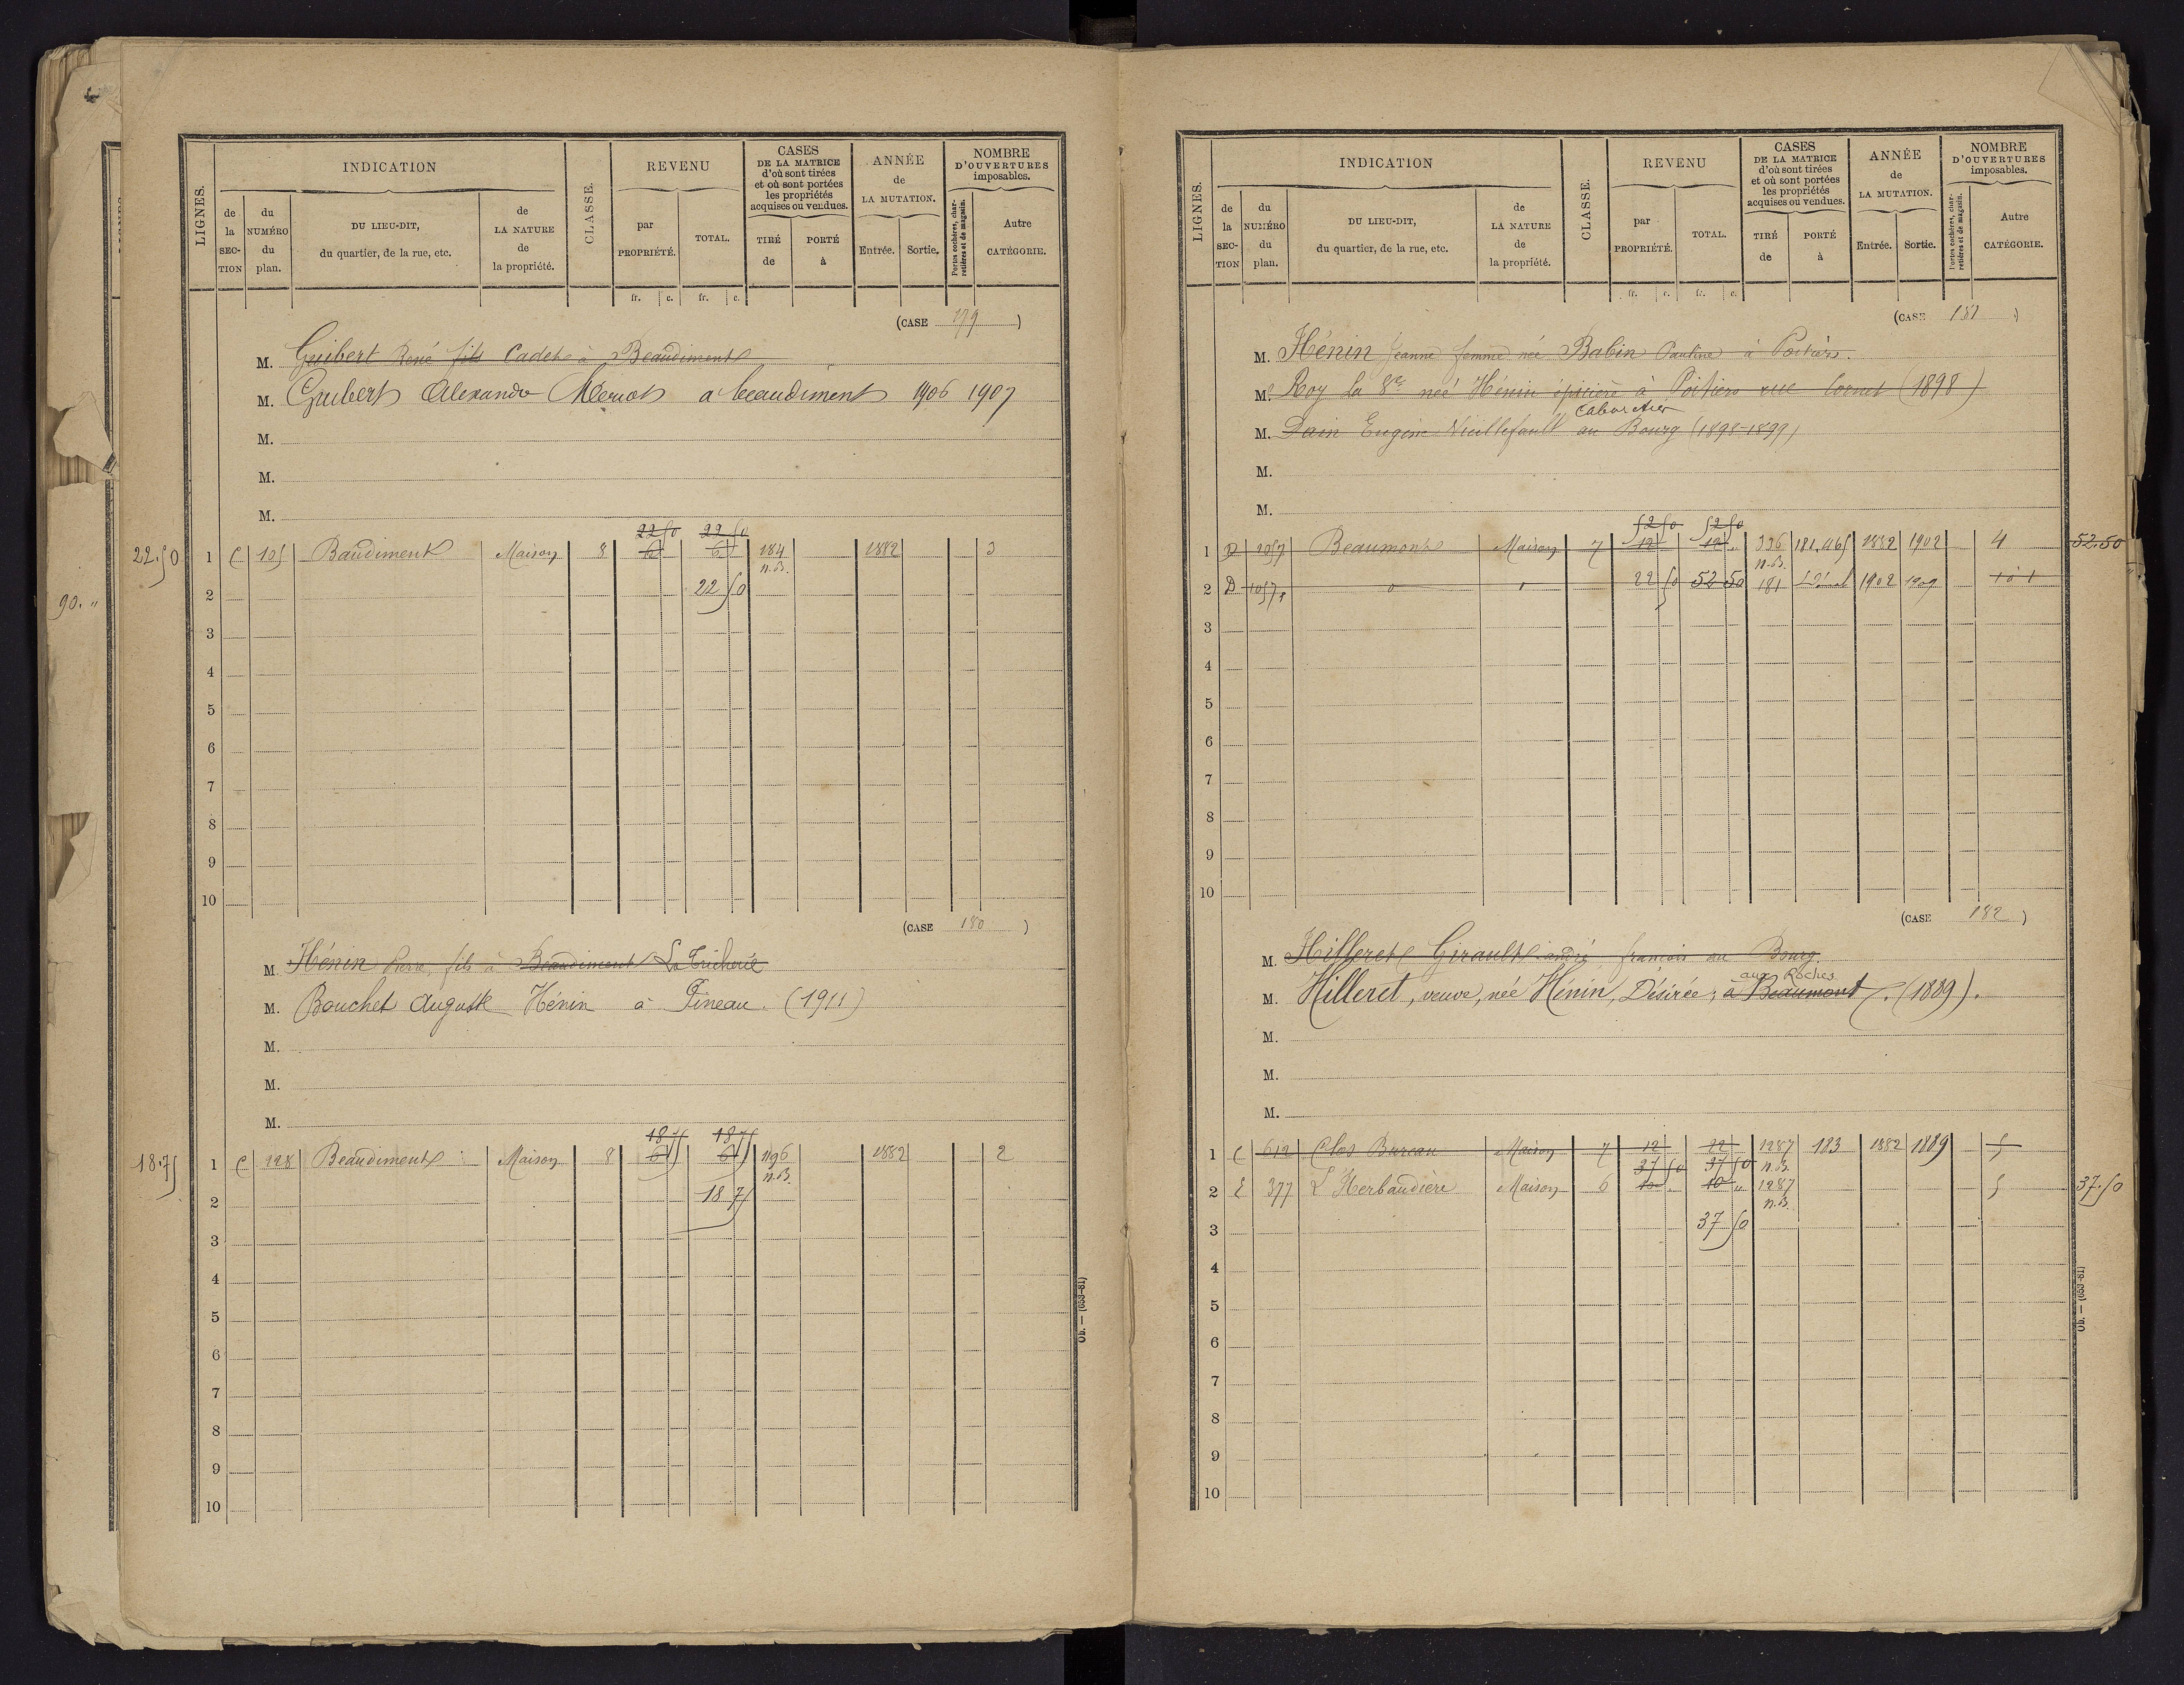 INDICATION
REVENU
CASES DE LA MATRICE d'où sont tirées et où sont portées les propriétés acquises ou vendues.
ANNÉE de LA MUTATION.
NOMBRE D'OUVERTURES imposables.
LIGNES.
de la SECTION
du NUMÉRO du plan.
DU LIEU-DIT, du quartier, de la rue, etc.
de LA NATURE de la propriété.
CLASSE.
par PROPRIÉTÉ.
TOTAL.
TIRÉ de
PORTÉ à
Entrée.
Sortie.
Portes cochères, charretières et de magasin.
Autre CATÉGORIE.
fr. c. fr. c.
(CASE 179)
M. Guibert René fils Cadet à Beaudiment
M. Guibert Alexandre à beaudiment 1906 1907
M.
M.
M.
22 50 22 50
22.50 1 C 105 Baudiment Maison 8 6 6 184 1882 3
n.B.
2 22 50
90. "
3
4
5
6
7
8
9
10
(CASE 180)
M. Hénin Pierre, fils à Beaudiment La Tricherie
M. Bouchet Auguste Hénin à Pineau. (1911)
M.
M.
M.
18 75 18 75
18.75 1 C 228 Beaudiment Maison 8 6 6 1196 1882 2
n.B.
2 18 75
3
4
5
6
7
8
9
10
Ob. — (653-81)
INDICATION
REVENU
CASES DE LA MATRICE d'où sont tirées et où sont portées les propriétés acquises ou vendues.
ANNÉE de LA MUTATION.
NOMBRE D'OUVERTURES imposables.
LIGNES.
de la SECTION
du NUMÉRO du plan.
DU LIEU-DIT, du quartier, de la rue, etc.
de LA NATURE de la propriété.
CLASSE.
par PROPRIÉTÉ.
TOTAL.
TIRÉ de
PORTÉ à
Entrée.
Sortie.
Portes cochères, charretières et de magasin.
Autre CATÉGORIE.
fr. c. fr. c.
(CASE 181)
M. Hénin Jeanne femme née Babin Pauline à Poitiers.
M. Roy la Vve née Hénin épicière à Poitiers rue Cornet (1898)
Cabaretier
M. Dain Eugène Vieillefault au Bourg (1898-1899)
M.
M.
52 50 52 50
1 D 1057 Beaumont Maison 7 12 12 " 336 181.465 1882 1902 4 52.50
n.B.
2 D 1057 " " 22 50 52 50 181 1902 1909
3
4
5
6
7
8
9
10
(CASE 182)
M. Hilleret Girault andré francois au Bourg.
aux Roches
M. Hilleret, veuve, née Hénin, Désirée, à Beaumont. (1889).
M.
M.
M.
1 C 612 Clos Bureau Maison 7 12 12 1287 183 1882 1889 5
37 50 37 50 n.B.
2 E 377 L'Herbaudière Maison 6 10 10 " 1287 5 37.50
n.B.
3 37 50
4
5
6
7
8
9
10
Ob. — (653-81)